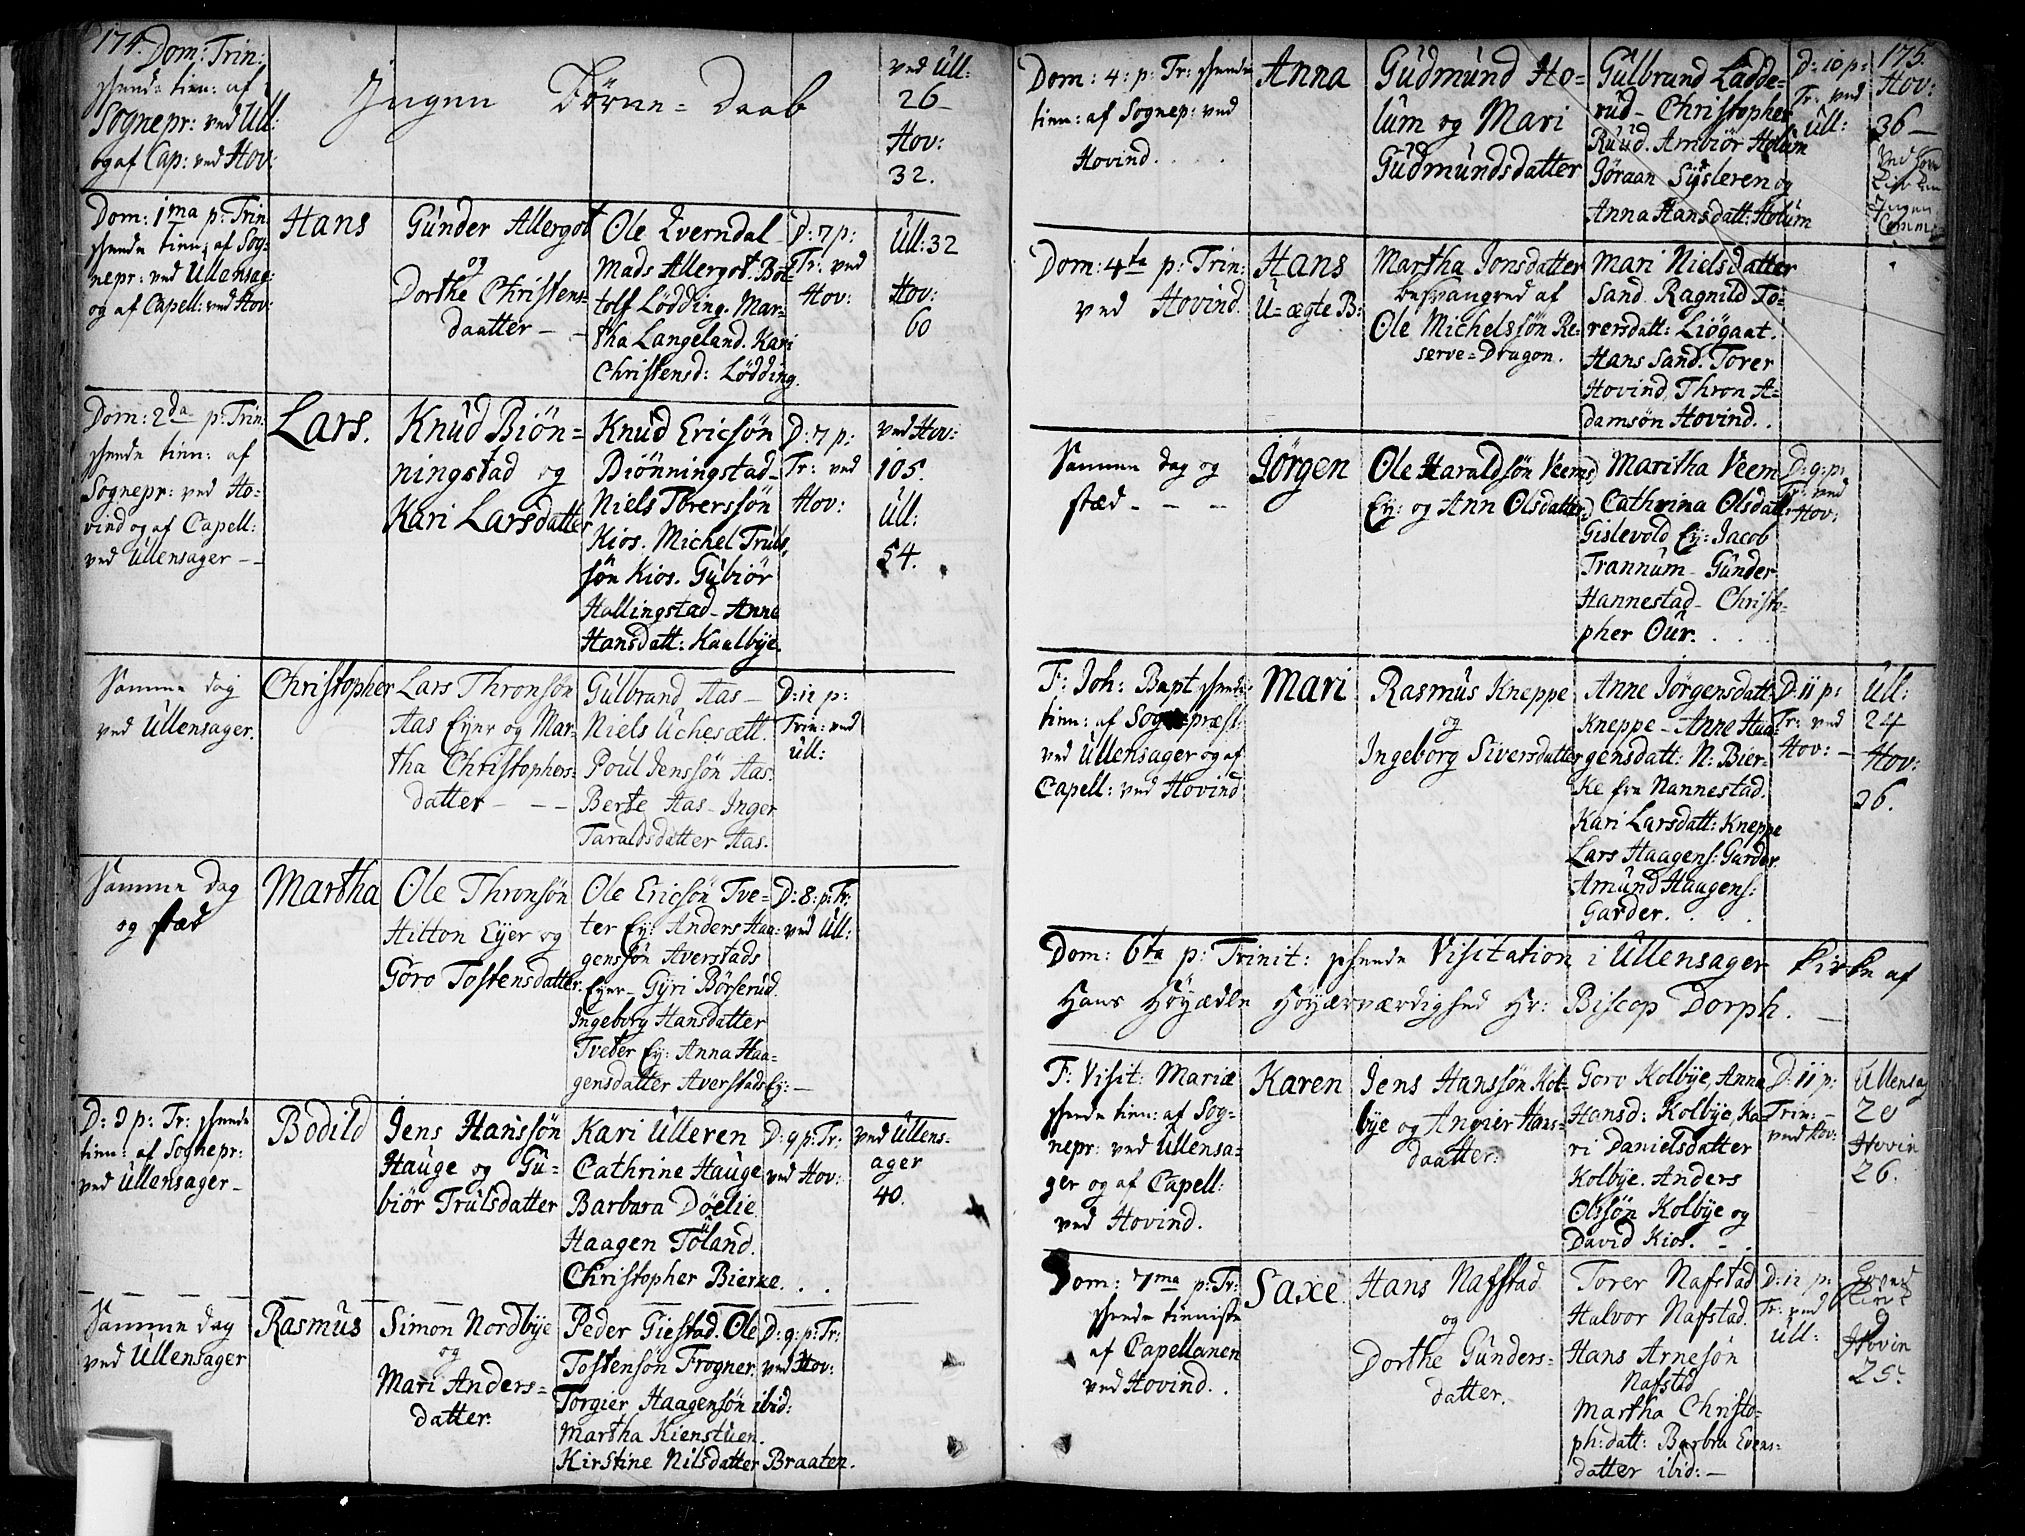 174. Dom: Trin:
skeede tien: af
Sognepr: ved Ull:
og af Cap: ved Hov:
Ingen Börne-Daab
ved Ull:
26
Hov:
32.
Dom: 1ma p: Trin:
skeede tien: af Sog-
nepr: ved Ullensag:
og af Capell: ved Hov:
Hans
Gúnder Allergot
og
Dorthe Christens-
daatter - -
Ole Lverndal
Mads Allergot. Bot
tolf Lödding. Mar-
tha Langeland. Kari
Christensd: Lödding.
D: 7 p:
Tr: ved
Hov:
Ull: 32
Hov:
60
Dom: 2da p: Trin:
skeede tien: af
Sognepr: ved Ho-
vind og af Capell:
ved Ullensager - -
Lars.
Knúd Biön-
ningstad og
Kari Larsdatter
Knúd Ericsön
Biönningstad
Niels Torerssön
Kios. Michel Truls
sön Kios. Gúbiör
Hallingstad - Anne
Hansdatt: Kaalbÿe.
D: 7 p:
Tr: ved
Hov:
ved Hov:
105.
Ull:
54.
Samme dag
ved Ullensager.
Christopher
Lars Thronsön
Aas Eÿer og Mar-
tha Christophers-
datter - - -
Gúlbrand Aas -
Niels Uchesætt.
Poúl Jenssön Aas.
Berte Aas - Inger
Taraldsdatter Aas.
D: 12 p:
Trin: ved
Ull:
Samme Dag
og stæd
Martha
Ole Thronsön
Hilton Eÿer og
Goro Tostensdatter.
Ole Ericsön Tve-
ter Eÿ: Anders Haa-
genssön Averstads
Eÿer - Gÿri Börserud.
Ingeborg Hansdatter
Tveter Eÿ: Anna Haa-
gensdatter Averstads Eÿ: -
D: 8: p: Tr:
ved Ull:
D: 3 p: Tr: skeede
tien: af Sognepr:
ved Ullensager -
Bodild
Jens Hanssön
Haúge og Gú-
biör Trúlsdatter
Kari Ulleren
Cathrine Hauge
Barbara Döelie
Haagen Töland.
Christopher Bierke. . .
D: 9 p: Tr:
ved Hov:
ved Ullens-
ager
40.
Samme dag
ved Ullensager
Rasmús
Simon Nordbÿe
og
Mari Anders-
datter.
Peder Giestad. Ole
Tostenson Frogner.
Torgier Haagensön ibid:
Martha Kienstuen.
Kirstine Nilsdatter Braaten.
D: 9: p: Tr:
ved Hov:
Dom: 4: p: Tr: skeede
tien: af Sognep: ved
Hovind. . . .
Anna
Gúdmúnd Ho-
lum og Mari
Gúdmúndsdatter
Gúlbrand Ladde-
rúd - Christopher
Rúúd. Ambiör Holúm
Jöraan Sÿsleren og
Anna Hansdatt: Holúm
D: 10 p:
Tr: ved
Ull:
175.
Hov:
36 -
Ved hoved
Kirken
Ingen
Comm:
Dom: 4ta p: Trin:
ved Hovind.
Hans
U-ægte B:
Martha Jonsdatter
besvangred af
Ole Michelssön Re-
serve-Dragon.
Mari Nielsdatter
Sand. Ragnild To-
rersdatt: Liögaat.
Hans Sand. Torer
Hovind. Thron A-
damsön Hovind. .
Samme dag og
stæd - - -
Jörgen
Ole Haraldsön Veem
Eÿ: og Ann Olsdatter
Maritha Veem
Cathrina Olsdatt:
Gislevold Eÿ: Jacob
Trannum - Gúnder
Hannestad - Christo-
pher Oúr. . . .
D: 9: p:
Tr: ved
Hov:
F: Joh: Bapt skeede
tien: af Sognepræst
ved Ullensager og af
Capell: ved Hovind
Mari
Rasmús Kneppe
og
Ingeborg Siversdatter
Anne Jörgensdatt:
Kneppe - Anne Haa-
gensdatt: N: Bier-
ke fra Nannestad.
Kari Larsdatt: Kneppe
Lars Haagens: Garder.
Amúnd Haagens:
Garder. . . .
D: 11 p:
Tr: ved
Hov: -
Ull:
24
Hov:
36.
Dom: 6ta p: Trinit: skeede Visitation i Ullensager Kirke af
Hans Höÿædle Höÿærværdighed Hr: Biscop Dorph. -
F: Visit: Mariæ
skeede tien: af Sog-
nepr: ved Ullensa-
ger og af Capell:
ved Hovind.
Karen
Jens Hanssön Kol-
bÿe og Angier Hans-
daatter.
Goro Kolbÿe, Anna
Hansd: Kolbÿe, Ka-
ri Danielsdatter
Kolbÿe. Anders
Olssön Kolbÿe og
David Kios. - .
D: 11 p:
Trin: -
ved Hov:
Ullensag
20
Hovin
26.
Dom: 7ma p: Tr:
skeede tienniste
af Capellanen
ved Hovind. .
Saxe.
Hans Nafstad
og
Dorthe Gúnders-
datter.
Torer Nafstad
Halvor Nafstad.
Hans Arnesön
Nafstad
Martha Christo-
ph: datt: Barbra Evens-
datter ibid: -
D: 12 p:
Tr: ved
Ull:
9
Hovin
25.